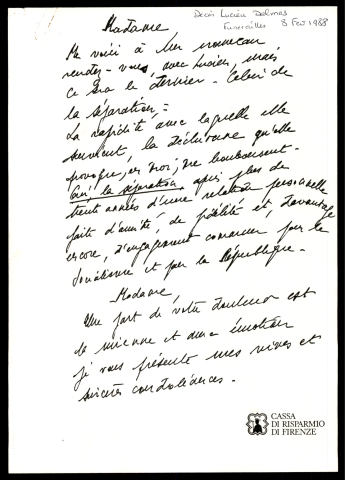 Décès Lucien Delmas
Funérailles 8 Fév 1988
Madame
Me voici à un nouveau
rendez-vous, avec Lucien, mais
ce sera le dernier. Celui de
la séparation.
La rapidité avec laquelle elle
survient, la déchirure qu'elle
provoque, en moi, me bouleversent.
Oui, la séparation, après plus de
trente années d'une relation personnelle
faite d'amitié, de fidélité et, davantage
encore, d'engagement commun pour le
Socialisme et pour la République.
Madame,
Une part de votre douleur est
la mienne et avec émotion
je vous présente mes vives et
sincères condoléances.
CASSA
DI RISPARMIO
DI FIRENZE